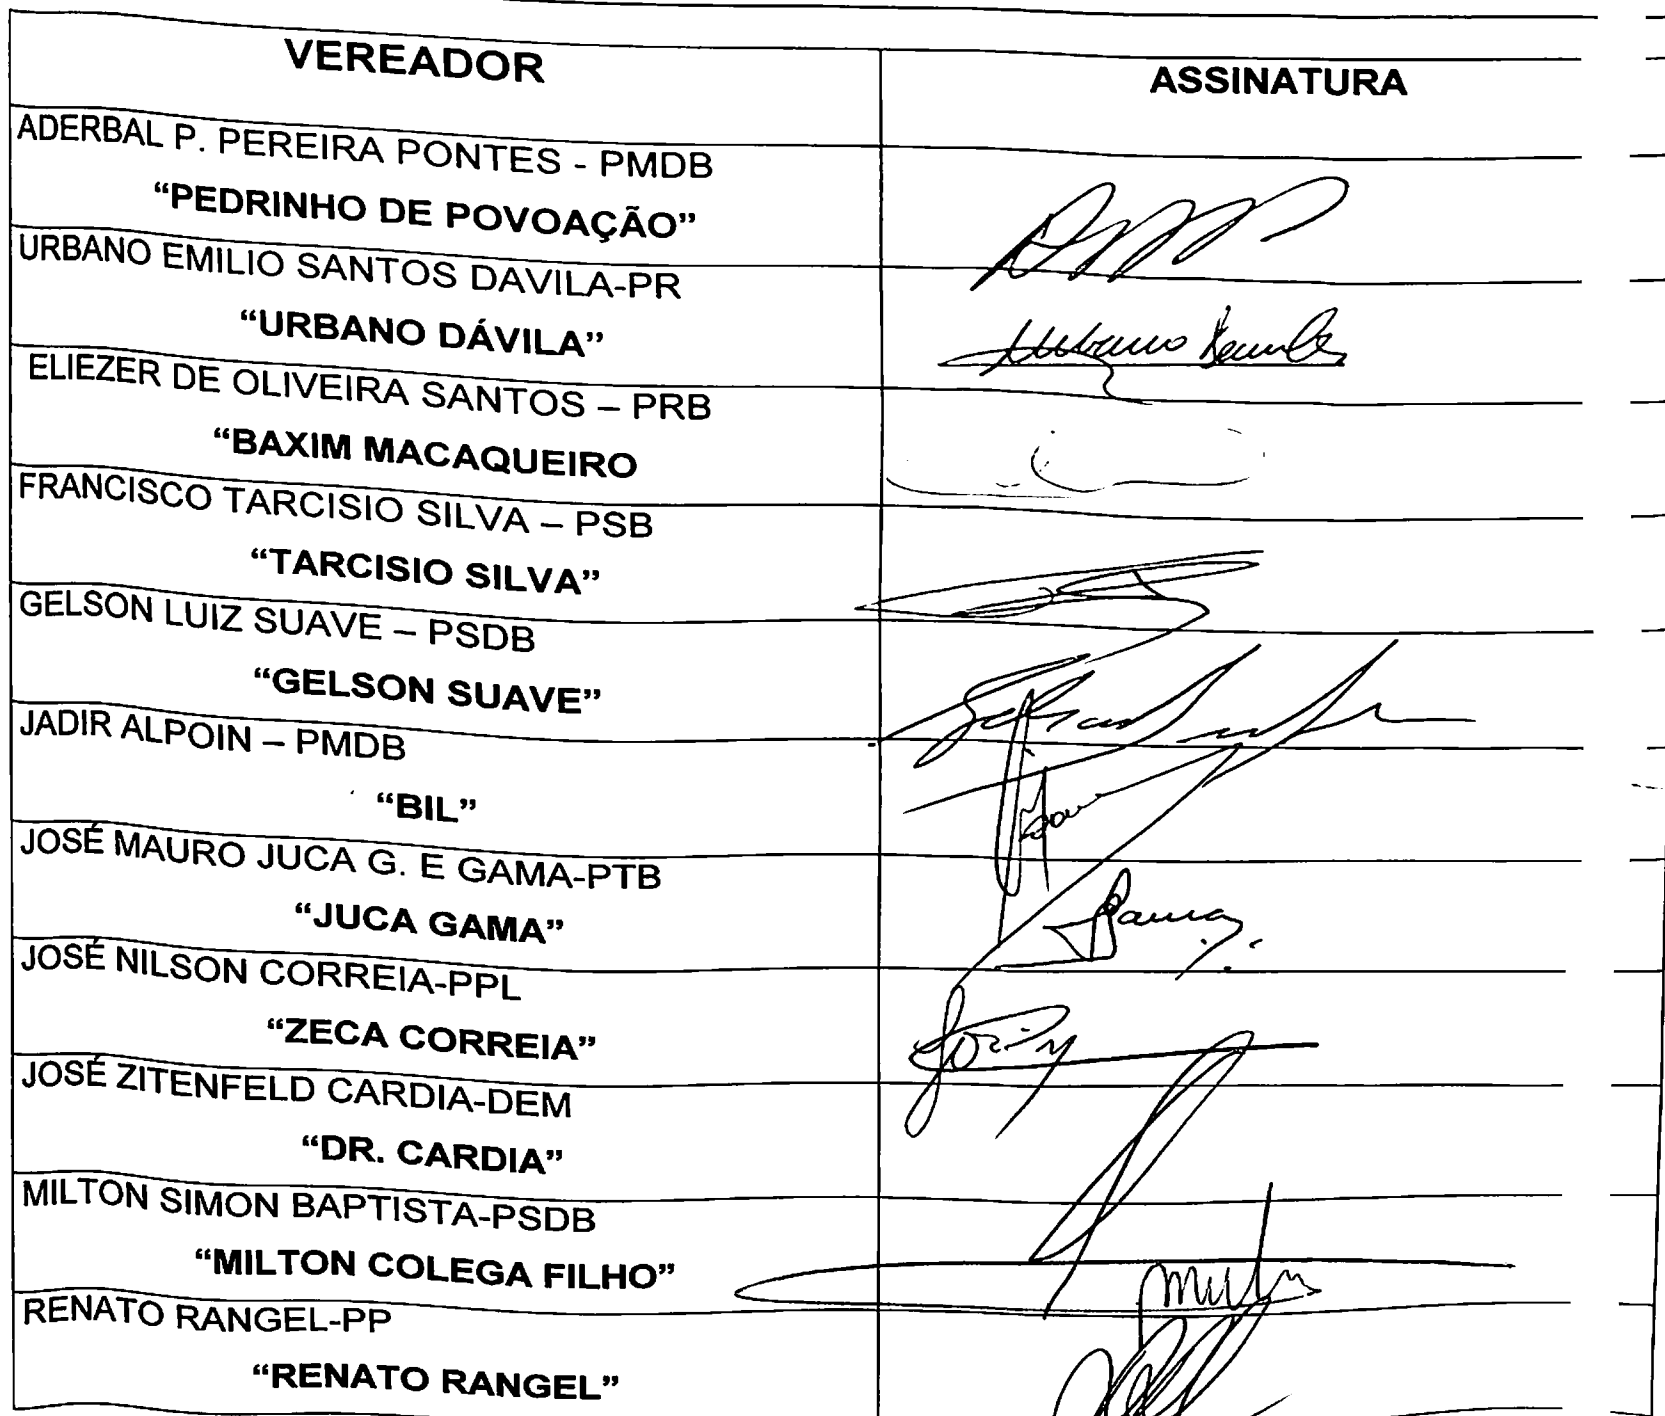 VEREADOR
ASSINATURA
ADERBAL P. PEREIRA PONTES - PMDB
“PEDRINHO DE POVOAÇÃO”
URBANO EMILIO SANTOS DAVILA-PR
“URBANO DÁVILA”
ELIEZER DE OLIVEIRA SANTOS – PRB
“BAXIM MACAQUEIRO
FRANCISCO TARCISIO SILVA – PSB
“TARCISIO SILVA”
GELSON LUIZ SUAVE – PSDB
“GELSON SUAVE”
JADIR ALPOIN – PMDB
“BIL”
JOSÉ MAURO JUCA G. E GAMA-PTB
“JUCA GAMA”
JOSÉ NILSON CORREIA-PPL
“ZECA CORREIA”
JOSÉ ZITENFELD CARDIA-DEM
“DR. CARDIA”
MILTON SIMON BAPTISTA-PSDB
“MILTON COLEGA FILHO”
RENATO RANGEL-PP
“RENATO RANGEL”